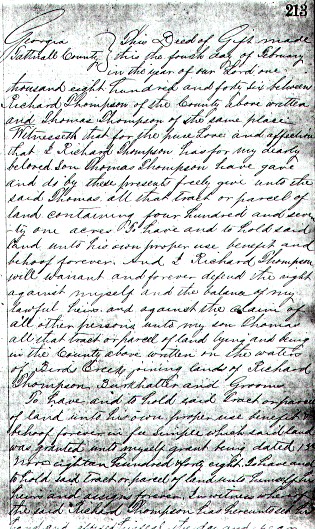 213
Georgia } This Deed of Gift made
Tattnall County } this the fourth day of February
in the year of our Lord one
thousand eight hundred and forty six between
Richard Thompson of the County above written
and Thomas Thompson of the same place
Witnesseth that for the pure Love and affection
that I Richard Thompson has for my dearly
beloved Son Thomas Thompson have gave
and do by these presents freely give unto the
said Thomas all that tract or parcel of
land containing four hundred and seven
ty one acres To have and to hold said
land unto his own proper use benefit and
behoof forever. And I Richard Thompson
will warrant and forever defend the right
against myself and the balance of my
lawful heirs and against the claim of
all other persons unto my son Thomas
all that tract or parcel of land lying and being
in the County above written on the waters
of Birds Creek joining lands of Richard
Thompson Burkhalter and Grooms
To have and to hold said tract or parcel
of land unto his own proper use benefit &
behoof forever in fee simple which said land
was granted unto myself grant being dated
Nov eighteen hundred & forty eight. I have and
to hold said tract or parcel of land unto himself his
heirs and assigns forever. In witness whereof
the said Richard Thompson has hereunto set his
hand and the day and